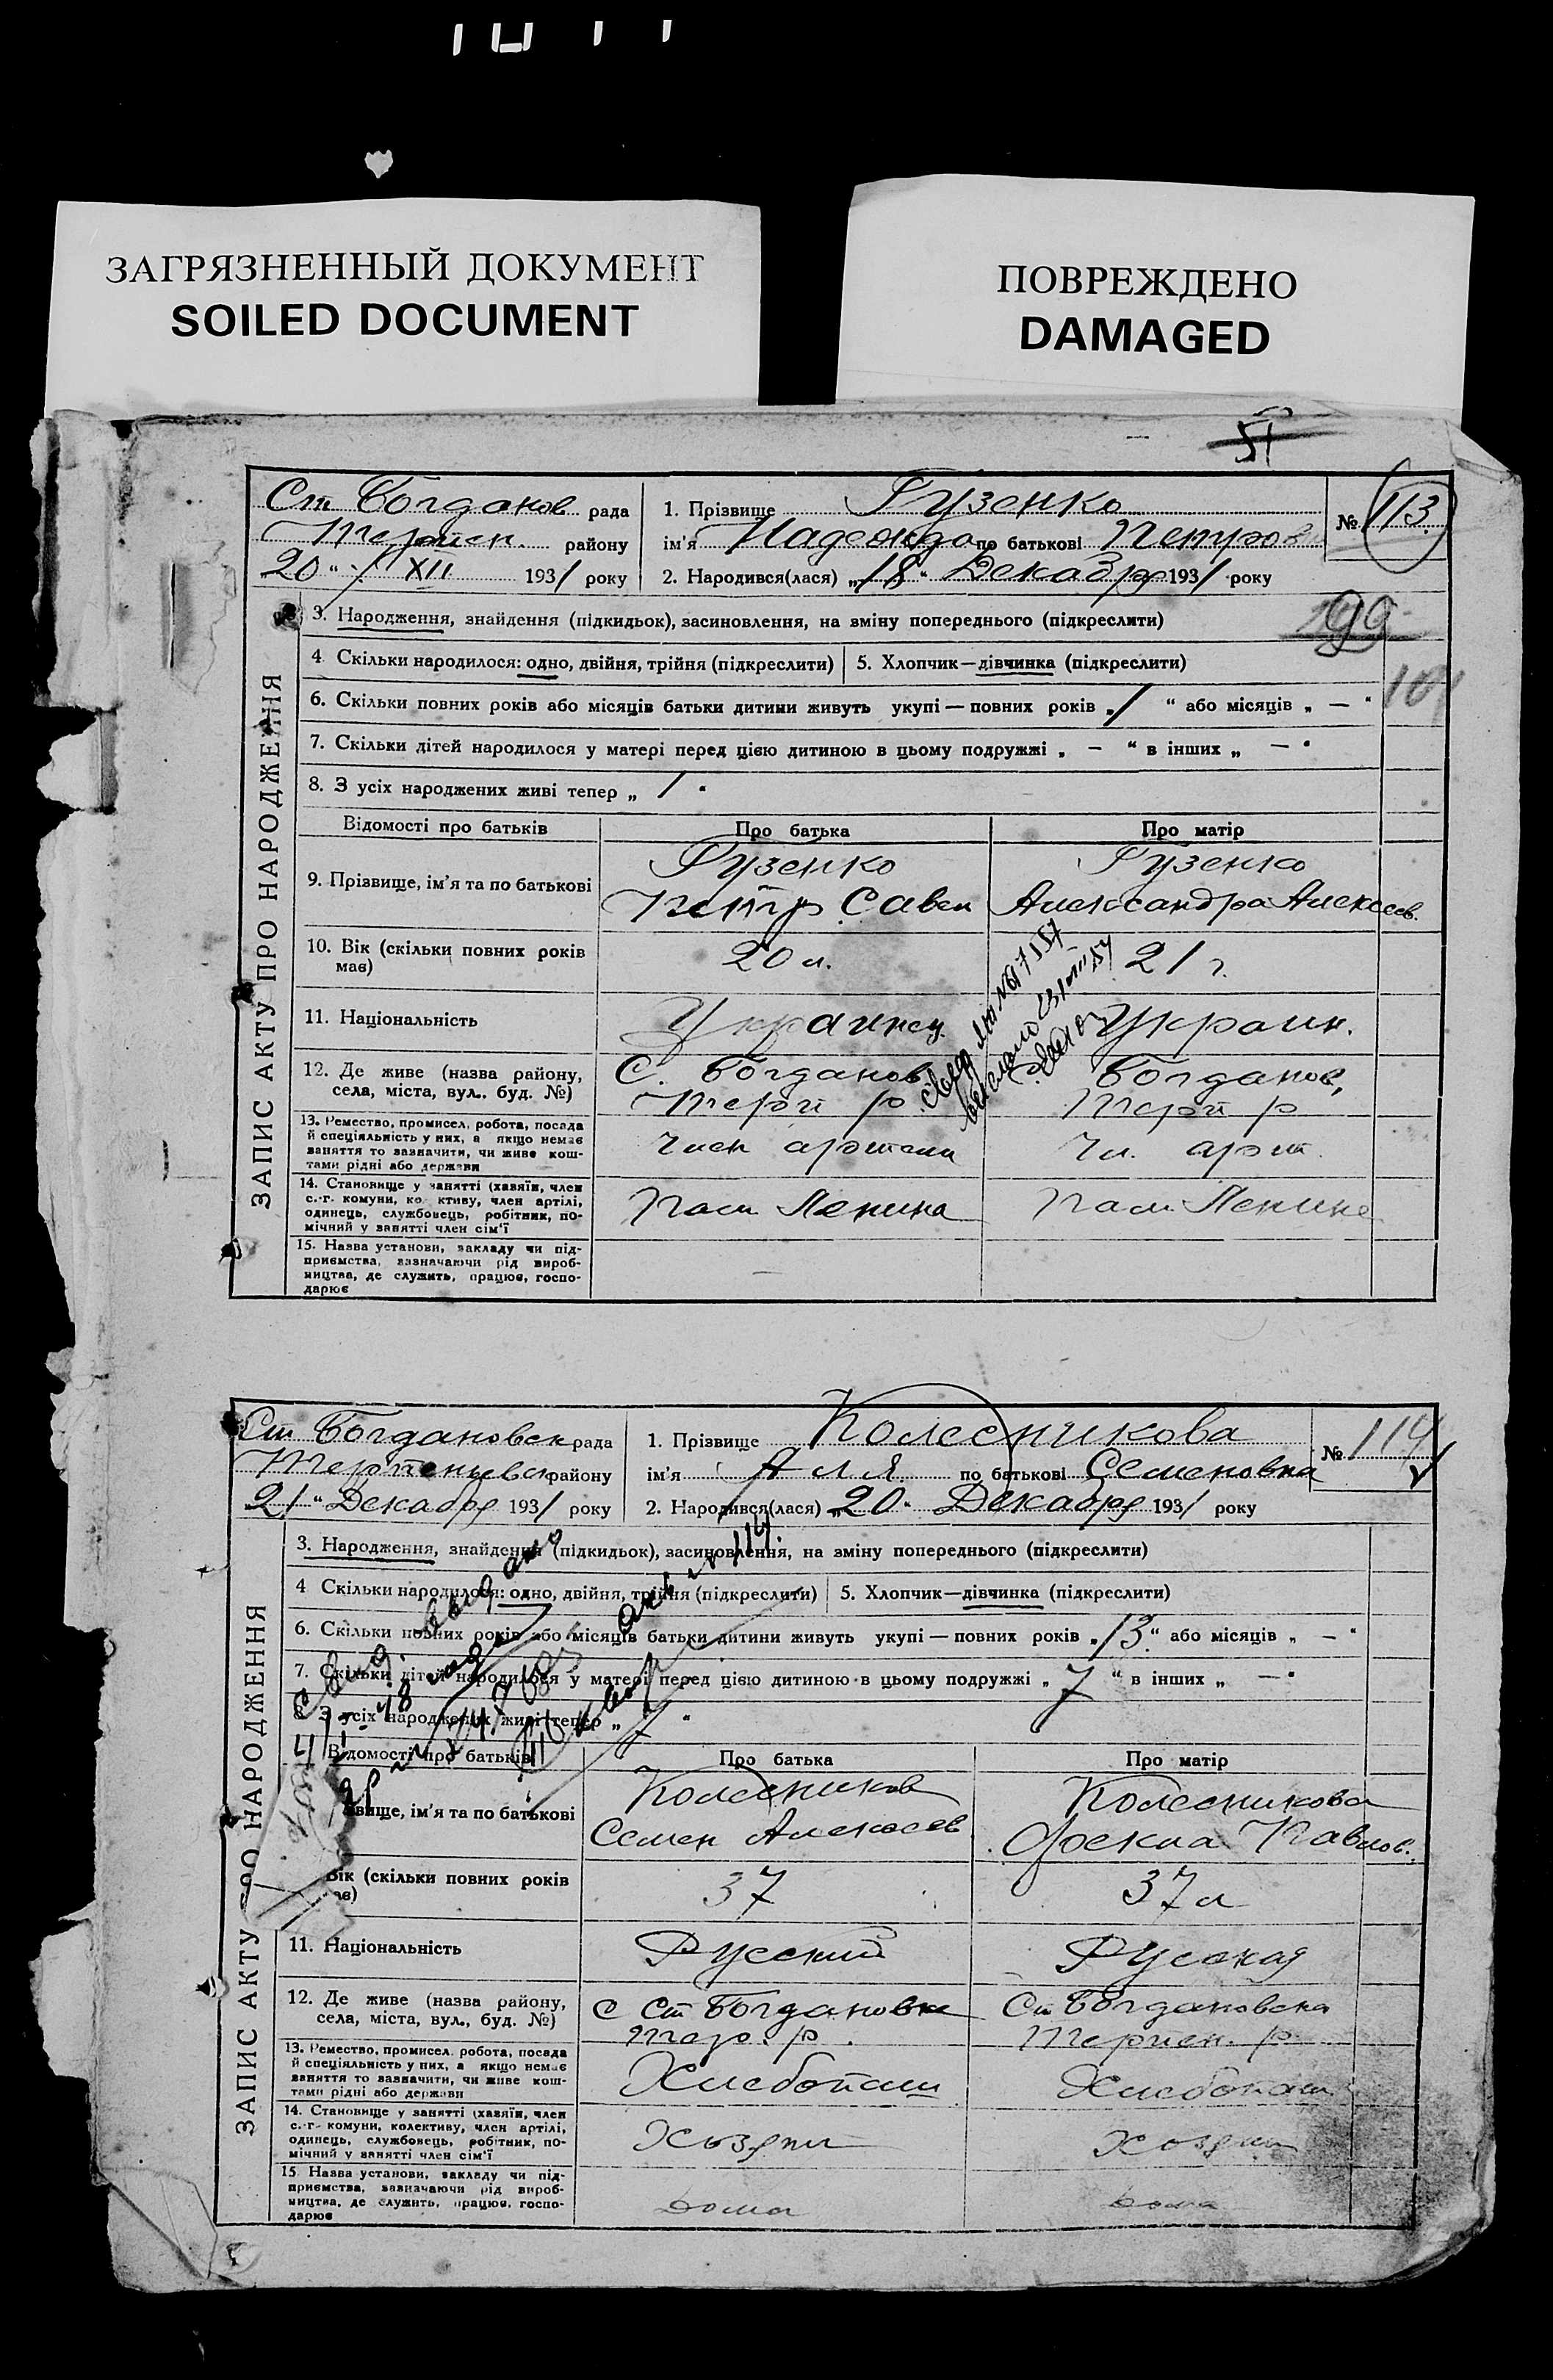 ЗАГРЯЗНЕННЫЙ ДОКУМЕНТ
SOILED DOCUMENT
ПОВРЕЖДЕНО
DAMAGED
51
Ст Богданов рада
Терпен. району
20 " XII 1931 року
1. Прізвище Гузенко
ім'я Надежда по батькові Петров
2. Народився(лася) „18" Декабря 1931 року
№ 113
3. Народження, знайдення (підкидьок), засиновлення, на зміну попереднього (підкреслити)
99
4 Скільки народилося: одно, двійня, трійня (підкреслити) 5. Хлопчик—дівчинка (підкреслити)
101
6. Скільки повних років або місяців батьки дитини живуть укупі — повних років „1" або місяців „ — "
7. Скільки дітей народилося у матері перед цією дитиною в цьому подружжі „ — " в інших „ — "
8. З усіх народжених живі тепер „ 1 "
ЗАПИС АКТУ ПРО НАРОДЖЕННЯ
Відомості про батьків Про батька Про матір
9. Прізвище, ім'я та по батькові
Гузенко
Петр Савел
Гузенко
Александра Алексеев.
10. Вік (скільки повних років
має)
20 л.
21 г.
11. Національність
Украинец
Украин.
12. Де живе (назва району,
села, міста, вул., буд. №)
С. Богданов
Терп р
Богданов,
Терп р
13. Ремество, промисел, робота, посада
й спеціяльність у них, а якщо немає
заняття то зазначити, чи живе кош-
тами рідні або держави
Член артели
Чл. арт.
14. Становище у занятті (хазяїн, член
с.-г. комуни, ко ктиву, член артілі,
одинець, службовець, робітник, по-
мічний у занятті член сім'ї
Пам Ленина
Пам Ленина
15. Назва установи, закладу чи під-
приємства, зазначаючи рід вироб-
ництва, де служить, працює, госпо-
дарює
Ст Богдановск рада
Терпеньевск району
21 " Декабря 1931 року
1. Прізвище Колесникова
ім'я Алля по батькові Семеновна
2. Народився(лася) „20" Декабря 1931 року
№ 114
3. Народження, знайдення (підкидьок), засиновлення, на зміну попереднього (підкреслити)
4 Скільки народилося: одно, двійня, трійня (підкреслити) 5. Хлопчик—дівчинка (підкреслити)
6. Скільки повних років або місяців батьки дитини живуть укупі — повних років „13" або місяців „ — "
7. Скільки дітей народилося у матері перед цією дитиною в цьому подружжі „ 7 " в інших „ — "
8. З усіх народжених живі тепер „ 7 "
Свид. выдано
ЗАПИС АКТУ РО НАРОДЖЕННЯ
Відомості про батьків Про батька Про матір
звище, ім'я та по батькові
Колесников
Семен Алексеев
Колесникова
Фекла Павлов.
Вік (скільки повних років
ає)
37
37 л
11. Національність
Русский
Русская
12. Де живе (назва району,
села, міста, вул., буд. №)
с Ст Богдановке
Тер. р.
Ст Богдановска
Терпен. р.
13. Ремество, промисел, робота, посада
й спеціяльність у них, а якщо немає
заняття то зазначити, чи живе кош-
тами рідні або держави
Хлебопаш
Хлебопаш
14. Становище у занятті (хазяїн, член
с.-г. комуни, колективу, член артілі,
одинець, службовець, робітник, по-
мічний у занятті член сім'ї
Хозяин
Хозяин
15 Назва установи, закладу чи під-
приємства, зазначаючи рід вироб-
ництва, де служить, працює, госпо-
дарює
дома
дома